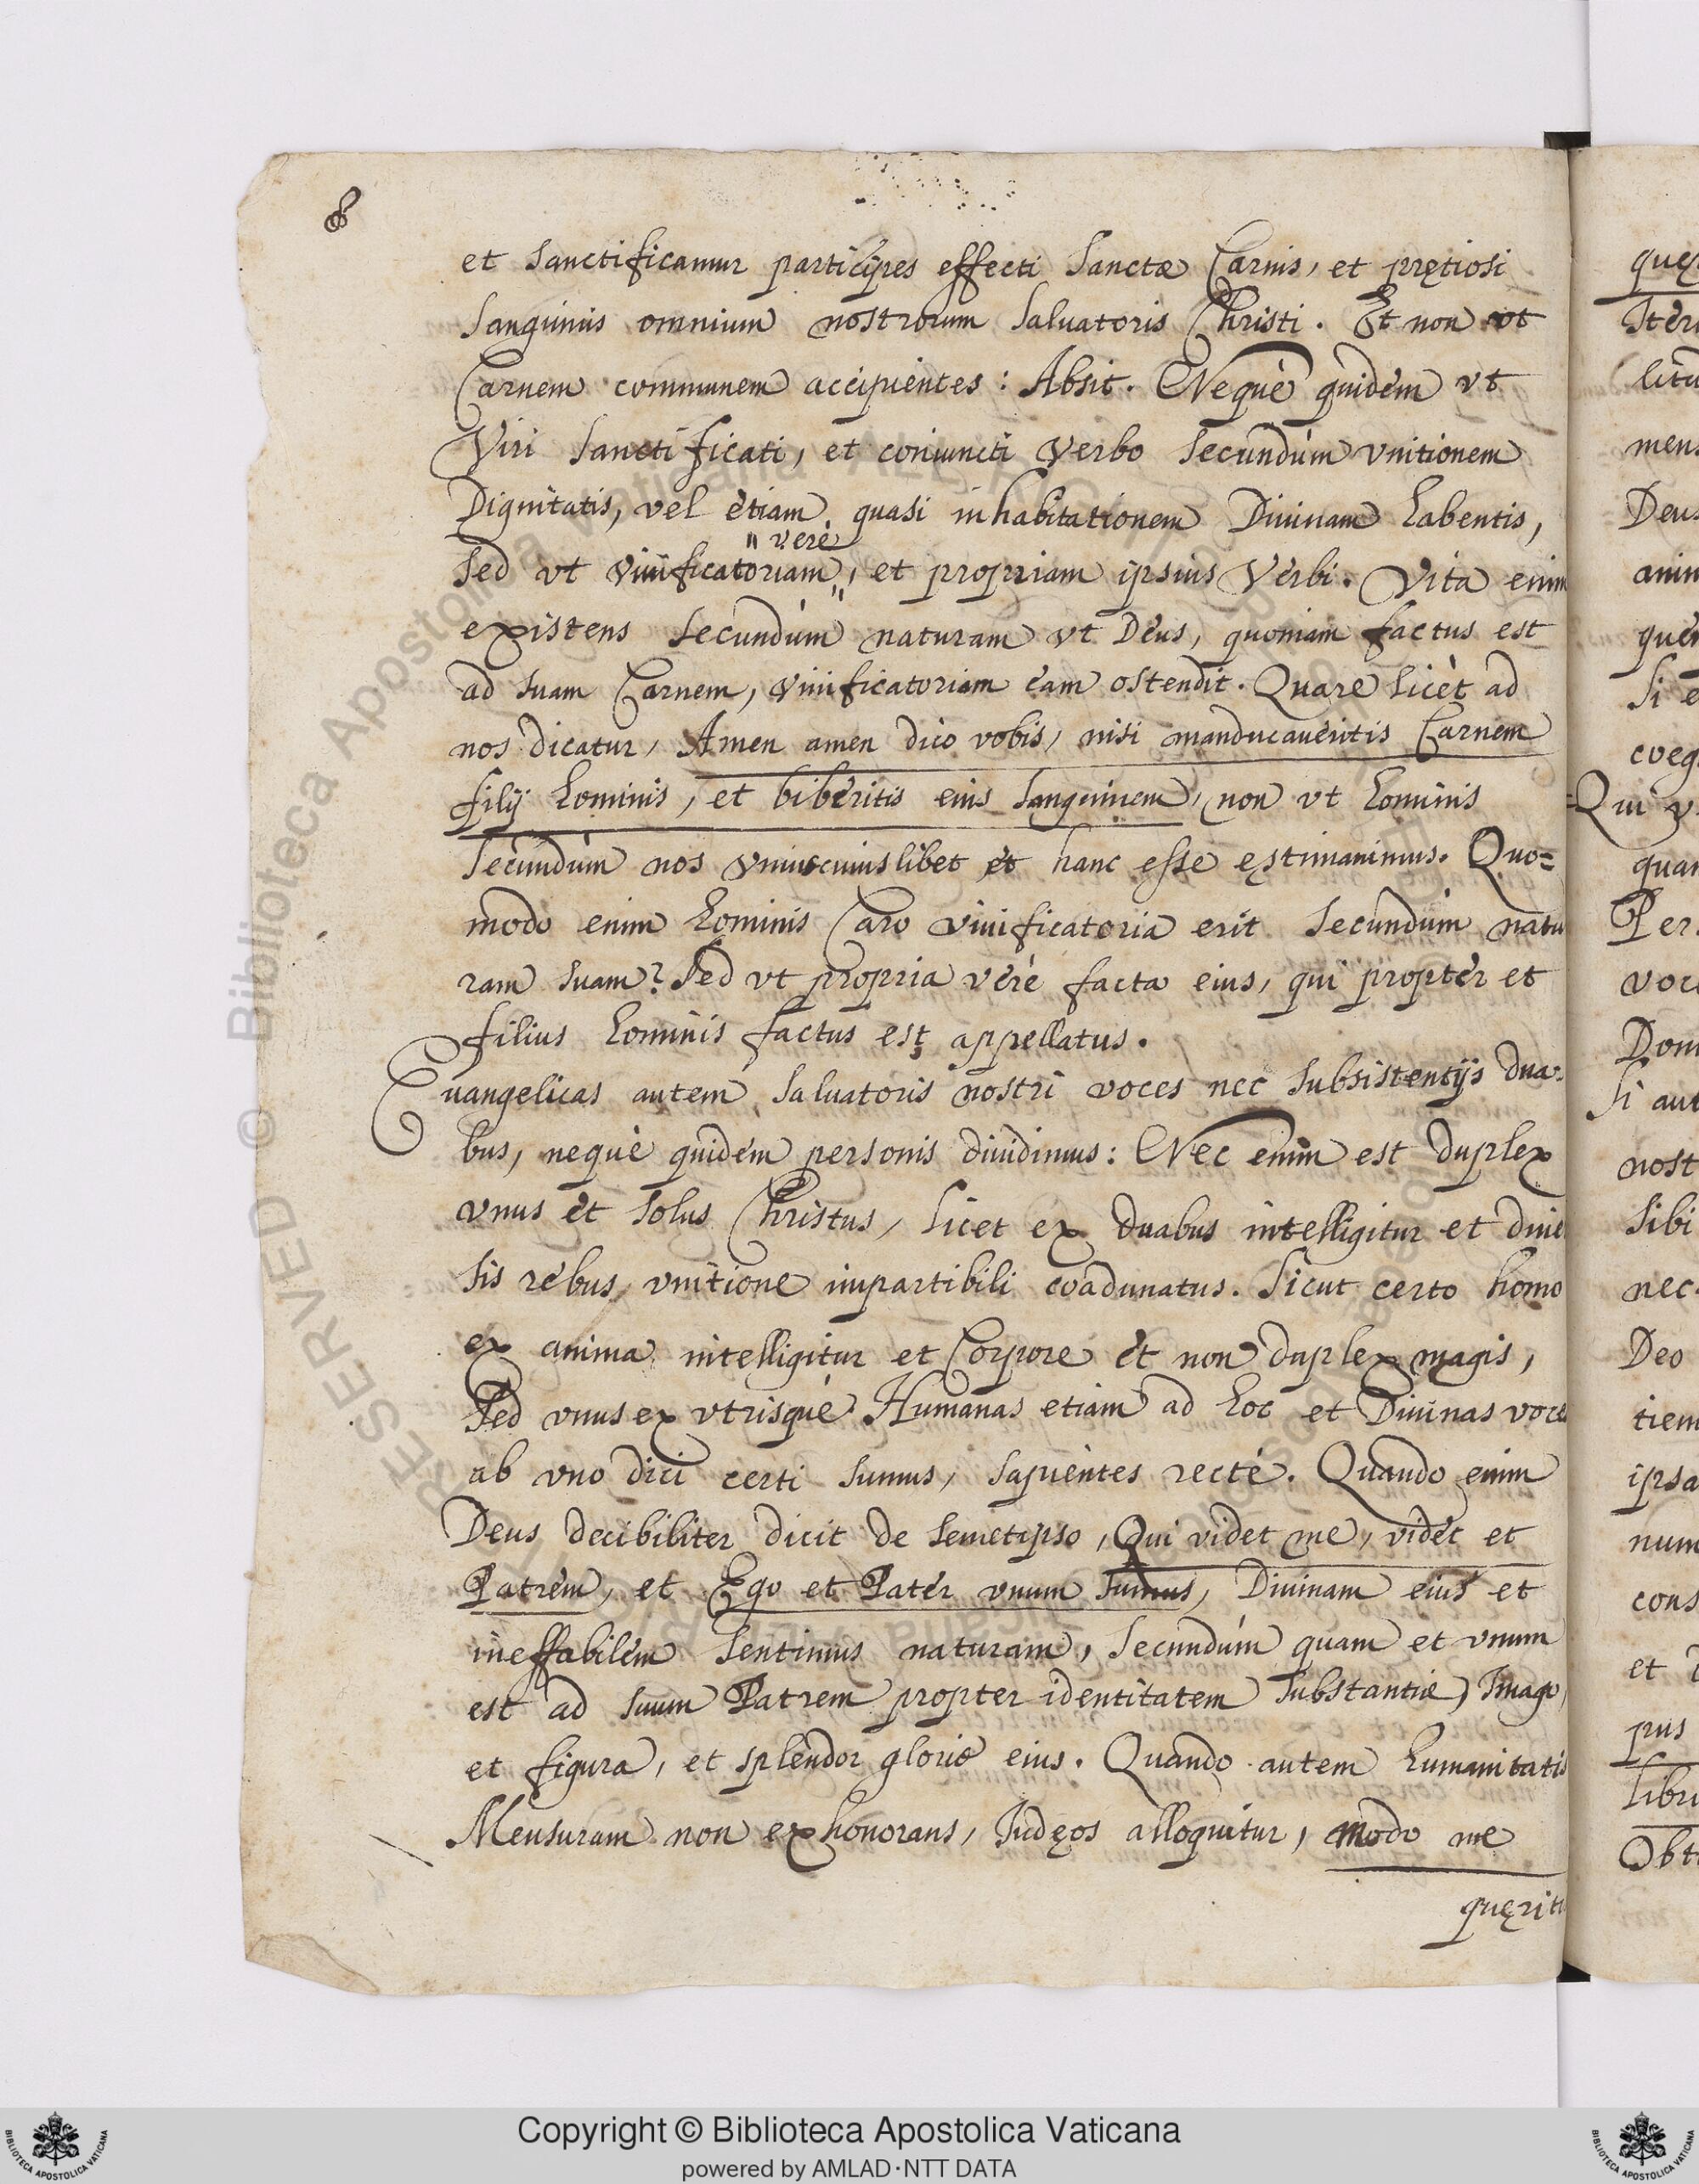 8
et sanctificamur participes effecti Sanctæ Carnis, et prętiosi
Sanguinis omnium nostrorum Saluatoris Christi. Et non vt
Carnem communem accipientes: Absit. Nequè quidem vt
Viri Sanctificati, et coniuncti Verbo secundùm vnitionem
Dignitatis, vel etiam quasi inhabitationem Diuinam habentis,
verè
sed vt viuificatoriam, et propriam ipsius Verbi. Vita enim
existens secundùm naturam vt Deus, quoniam factus est
ad suam Carnem, viuificatoriam eam ostendit. Quare licèt ad
nos dicatur, Amen amen dico vobis, nisi manducaueritis Carnem
filij hominis, et biberitis eius sanguinem, non vt hominis
secundùm nos vniuscuiuslibet et hanc esse ęstimanimus. Quo=
modo enim hominis Caro viuificatoria erit secundùm natu
ram suam? Sed vt propria verè facta eius, qui propter et
filius hominis factus est appellatus.
Euangelicas autem Saluatoris nostri voces nec subsistentijs dua=
bus, nequè quidem personis diuidimus: Nec enim est duplex
vnus et solus Christus, licet ex duabus intelligitur et diue
sis rebus vnitione impartibili coadunatus. Sicut certo homo
ex anima intelligitur et Corpore et non duplex magis,
Sed vnus ex vtrisquè. Humanas etiam ad hoc et Diuinas voce
ab vno dici certi sumus, sapientes rectè. Quando enim
Deus decibiliter dicit de semetipso, Qui videt me, videt et
Patrem, et Ego et Pater vnum sumus, Diuinam eius et
ineffabilem sentimus naturam, secundùm quam et vnum
est ad suum Patrem propter identitatem substantiæ, Imago
et figura, et splendor gloriæ eius. Quando autem humanitatis
Mensuram non exhonorans, Iudęos alloquitur, modo me
quęriti
quę
Iter
litu
mens
Deus
anim
quem
Si e
coeg
Qui v
quan
Per
voce
Dom
Si aut
nost
sibi
nec
Deo
tiem
ipsa
num
cons
et
pus
libr
Obt
© Biblioteca Apostolica Vaticana
RESERVED
Copyright © Biblioteca Apostolica Vaticana
powered by AMLAD·NTT DATA
BIBLIOTECA APOSTOLICA VATICANA
BIBLIOTECA APOSTOLICA VATICANA